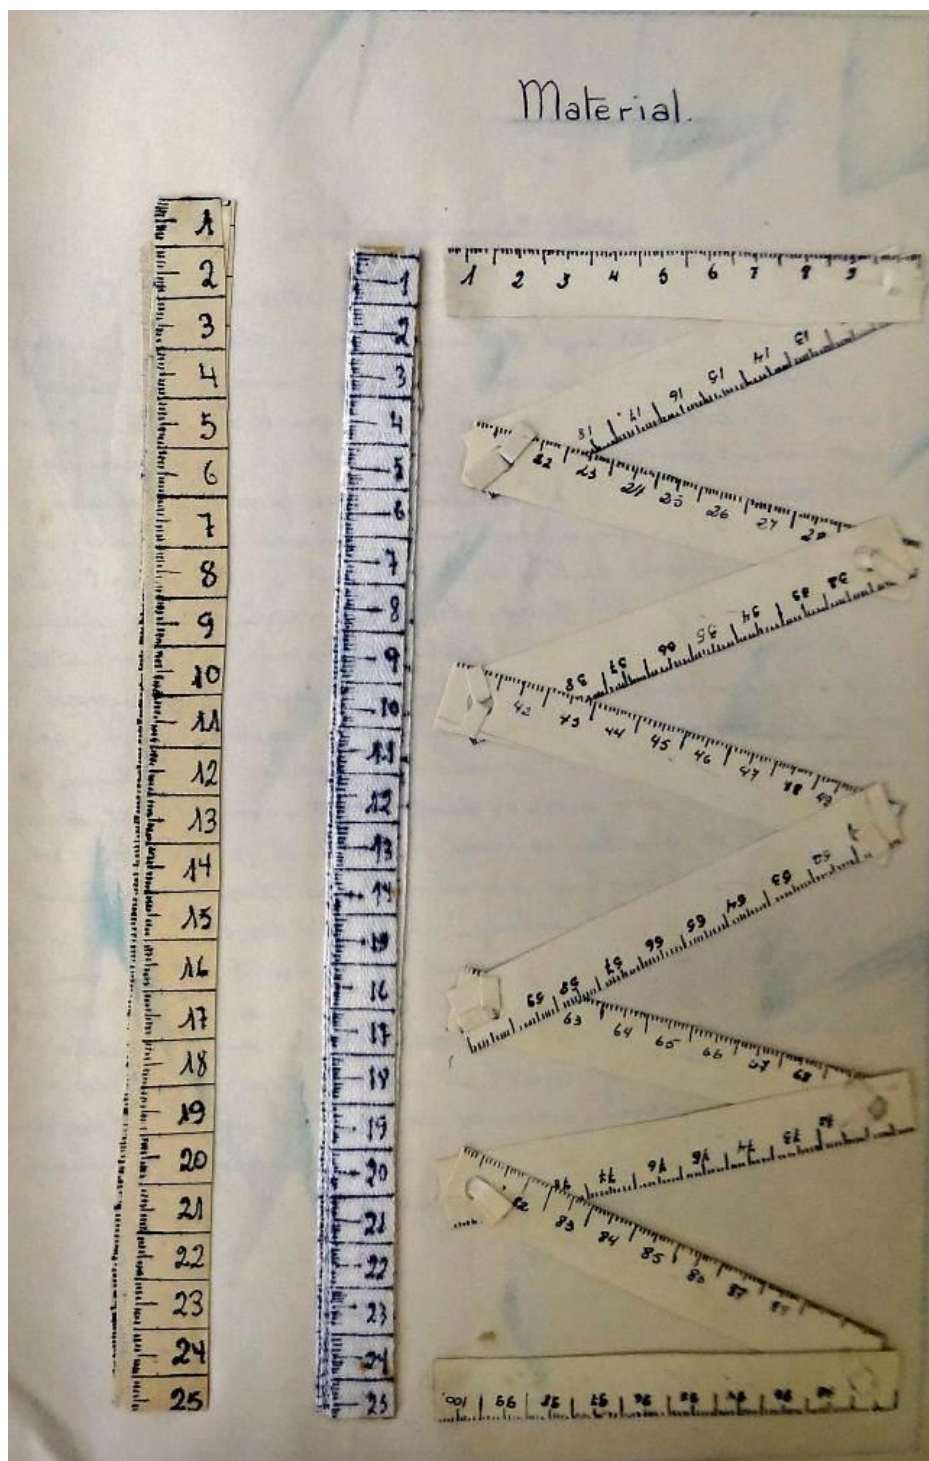 Material.
1
2
3
4
5
6
7
8
9
10
11
12
13
14
15
16
17
18
19
20
21
22
23
24
25
1
2
3
4
5
6
7
8
9
10
11
12
13
14
15
16
17
18
19
20
21
22
23
24
25
1 2 3 4 5 6 7 8 9
13 14 15 16 17 18
22 23 24 25 26 27 28
32 33 34 35 36 37 38
42 43 44 45 46 47 48 49
52 53 54 55 56 57 58 59
63 64 65 66 67 68
72 73 74 75 76 77 78
82 83 84 85 86 87 88
100 99 98 97 96 95 94